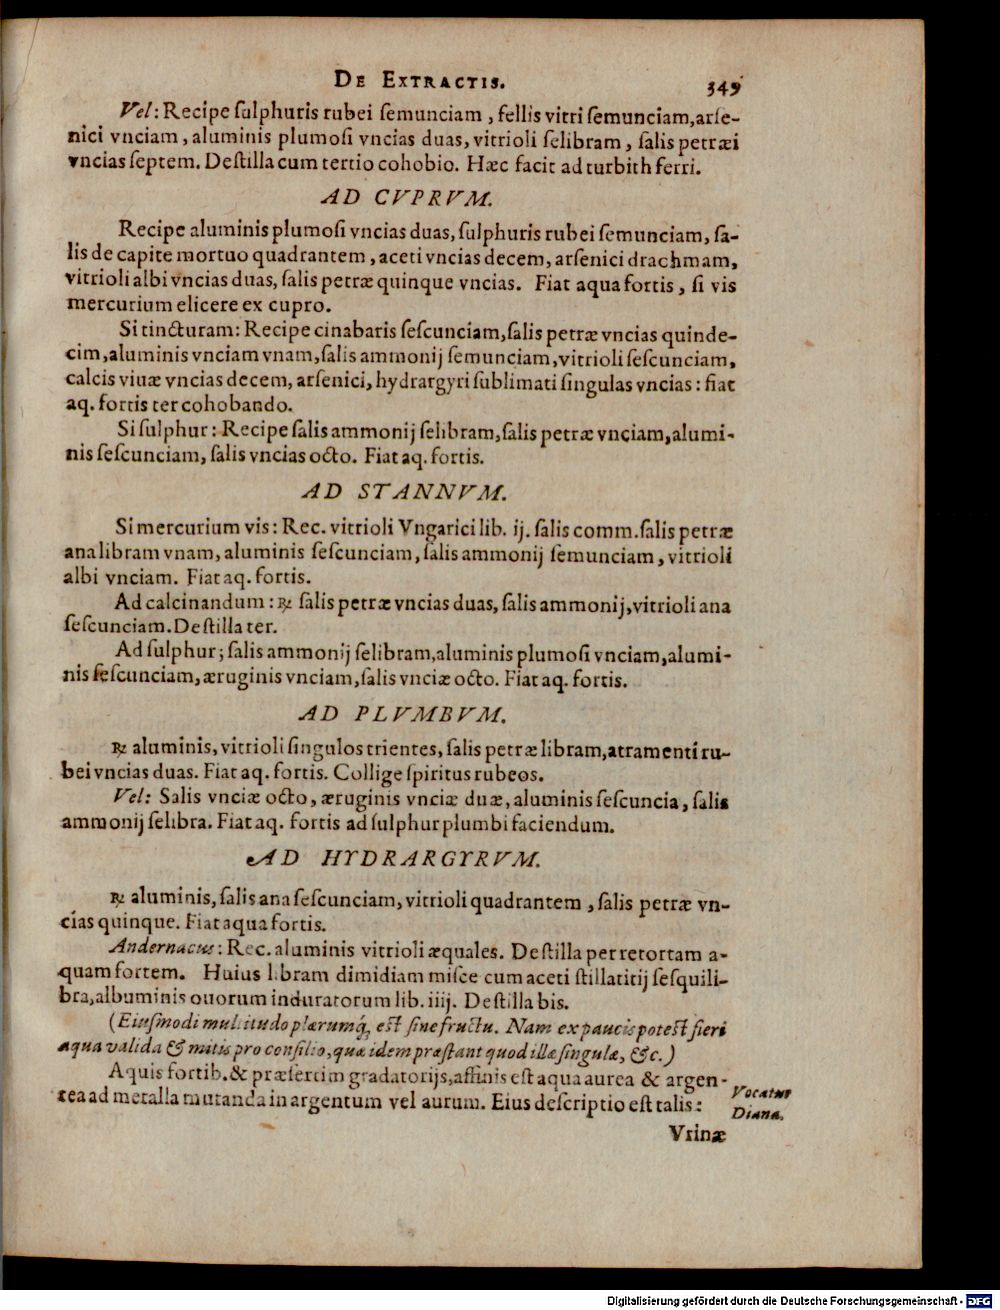 De Extractis. 349
Vel: Recipe ſulphuris rubei ſemunciam, fellis vitri ſemunciam, arſe-
nici vnciam, aluminis plumoſi vncias duas, vitrioli ſelibram, ſalis petræi
vncias ſeptem. Deſtilla cum tertio cohobio. Hæc facit ad turbith ferri.
AD CVPRVM.
Recipe aluminis plumoſi vncias duas, ſulphuris rubei ſemunciam, ſa-
lis de capite mortuo quadrantem, aceti vncias decem, arſenici drachmam,
vitrioli albi vncias duas, ſalis petræ quinque vncias. Fiat aqua fortis, ſi vis
mercurium elicere ex cupro.
Si tincturam: Recipe cinabaris ſeſcunciam, ſalis petræ vncias quinde-
cim, aluminis vnciam vnam, ſalis ammonij ſemunciam, vitrioli ſeſcunciam,
calcis viuæ vncias decem, arſenici, hydrargyri ſublimati ſingulas vncias: fiat
aq. fortis ter cohobando.
Si ſulphur: Recipe ſalis ammonij ſelibram, ſalis petræ vnciam, alumi-
nis ſeſcunciam, ſalis vncias octo. Fiat aq. fortis.
AD STANNVM.
Si mercurium vis: Rec. vitrioli Vngarici lib. ij. ſalis comm. ſalis petræ
ana libram vnam, aluminis ſeſcunciam, ſalis ammonij ſemunciam, vitrioli
albi vnciam. Fiat aq. fortis.
Ad calcinandum: ℞ ſalis petræ vncias duas, ſalis ammonij, vitrioli ana
ſeſcunciam. Deſtilla ter.
Ad ſulphur; ſalis ammonij ſelibram, aluminis plumoſi vnciam, alumi-
nis ſeſcunciam, æruginis vnciam, ſalis vnciæ octo. Fiat aq. fortis.
AD PLVMBVM.
℞ aluminis, vitrioli ſingulos trientes, ſalis petræ libram, atramenti ru-
bei vncias duas. Fiat aq. fortis. Collige ſpiritus rubeos.
Vel: Salis vnciæ octo, æruginis vnciæ duæ, aluminis ſeſcuncia, ſalis
ammonij ſelibra. Fiat aq. fortis ad ſulphur plumbi faciendum.
AD HYDRARGYRVM.
℞ aluminis, ſalis ana ſeſcunciam, vitrioli quadrantem, ſalis petræ vn-
cias quinque. Fiat aqua fortis.
Andernacus: Rec. aluminis vitrioli æquales. Deſtilla per retortam a-
quam fortem. Huius libram dimidiam miſce cum aceti ſtillatitij ſeſquili-
bra, albuminis ouorum induratorum lib. iiij. Deſtilla bis.
(Eiuſmodi multitudo plærumq́; eſt ſine fructu. Nam ex paucis poteſt fieri
aqua valida & mitis pro conſilio, quæ idem præſtant quod illæ ſingulæ, &c.)
Aquis fortib. & præſertim gradatorijs, affinis eſt aqua aurea & argen-
tea ad metalla mutanda in argentum vel aurum. Eius deſcriptio eſt talis:
Vocatur
Diana.
Vrinæ
Digitalisierung gefördert durch die Deutsche Forschungsgemeinschaft - DFG